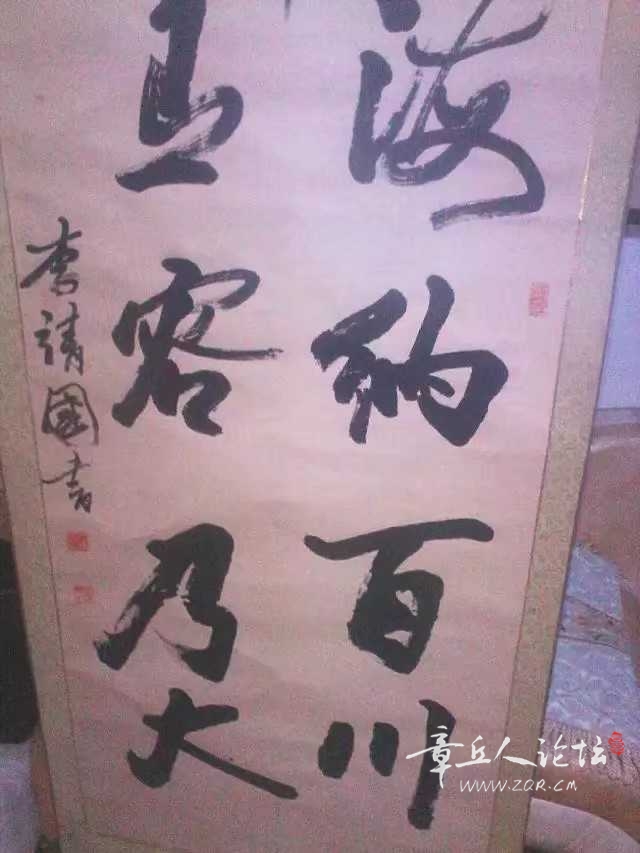 海納百川
有容乃大
李靖國書
章丘人论坛
WWW.ZQR.CM